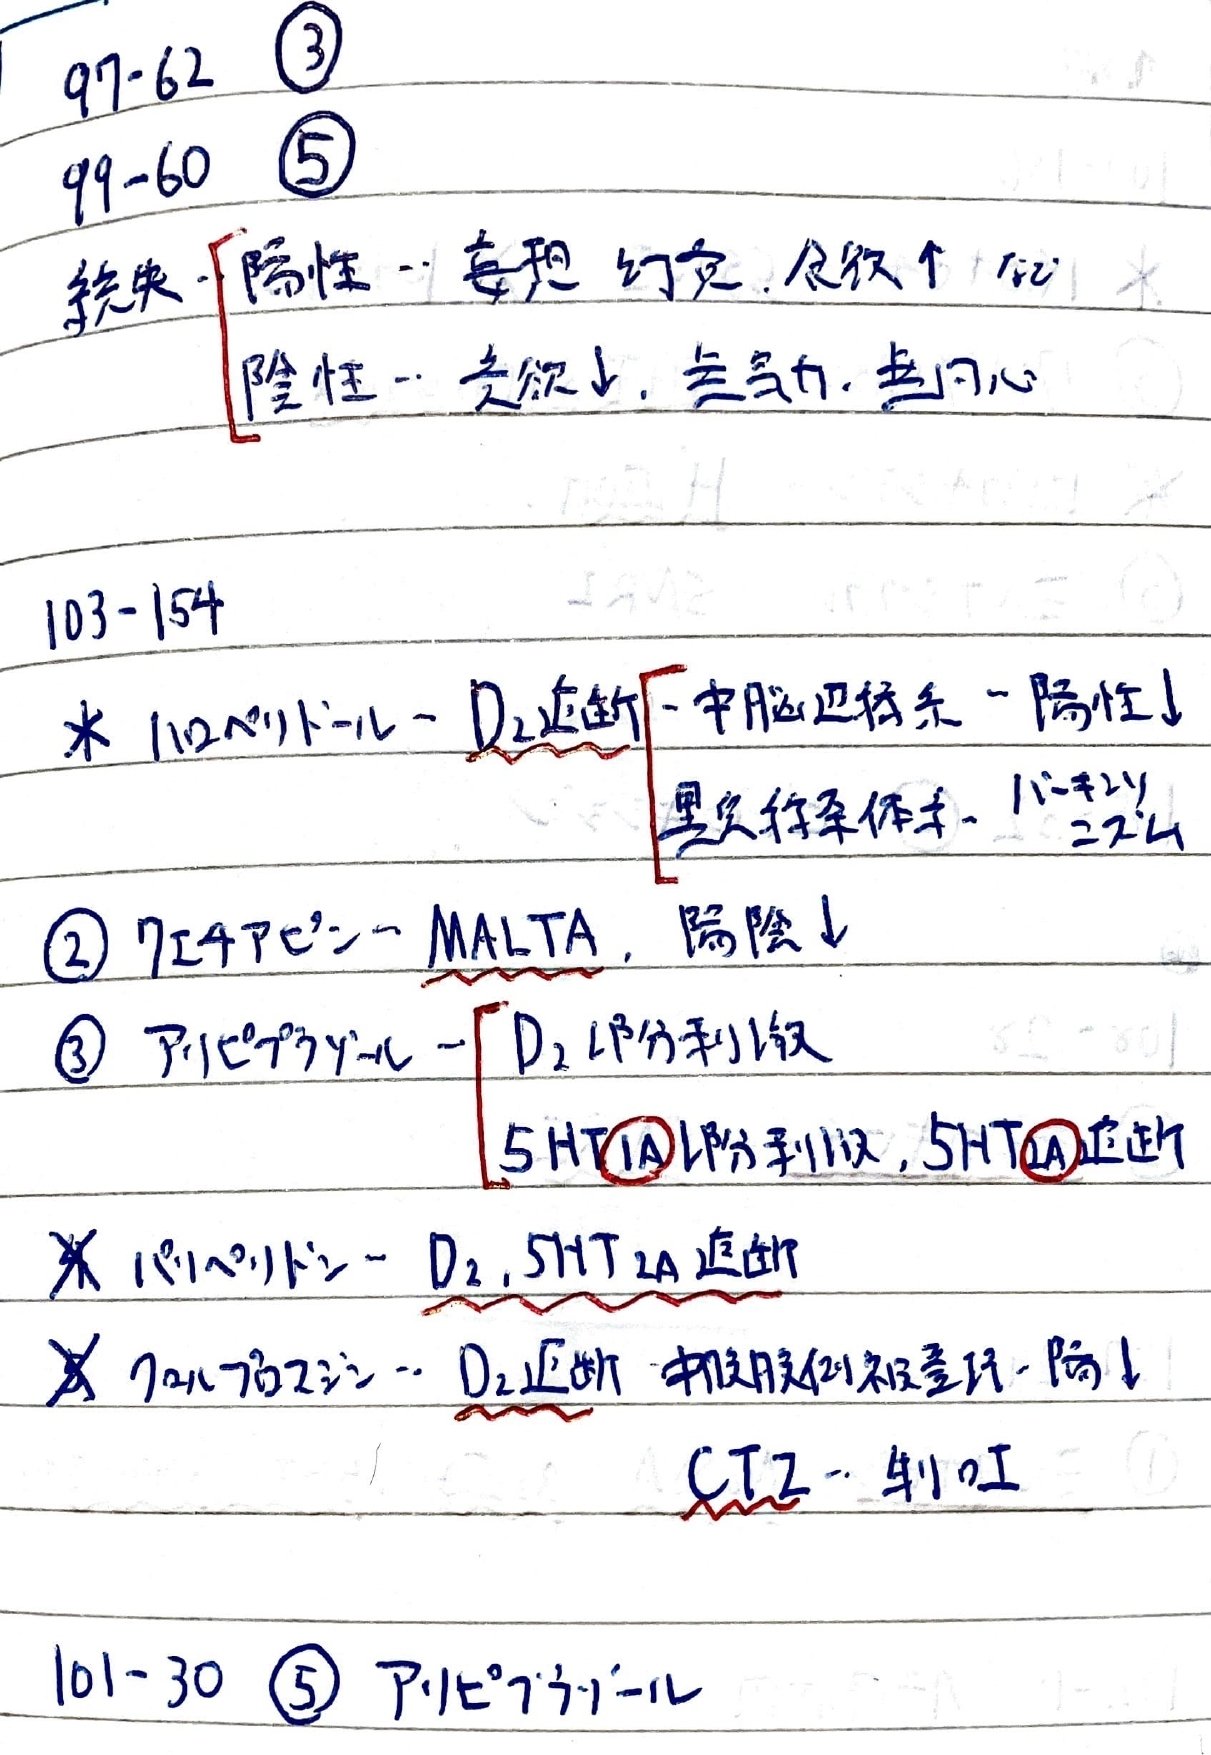 97-62 ③
99-60 ⑤
統失‥陽性‥妄想 幻覚、食欲↑ など
陰性‥意欲↓、無気力、無関心
103-154
* ハロペリドール - D2遮断 - 中脳辺縁系 - 陽性↓
黒質線条体系 - パーキンソニズム
② クエチアピン - MALTA、陽陰↓
③ アリピプラゾール - D2部分刺激
5HT1A部分刺激、5HT2A遮断
パリペリドン - D2、5HT2A遮断
クロルプロマジン‥D2遮断 中脳 - 陽↓
CTZ‥制吐
101-30 ⑤ アリピプラゾール